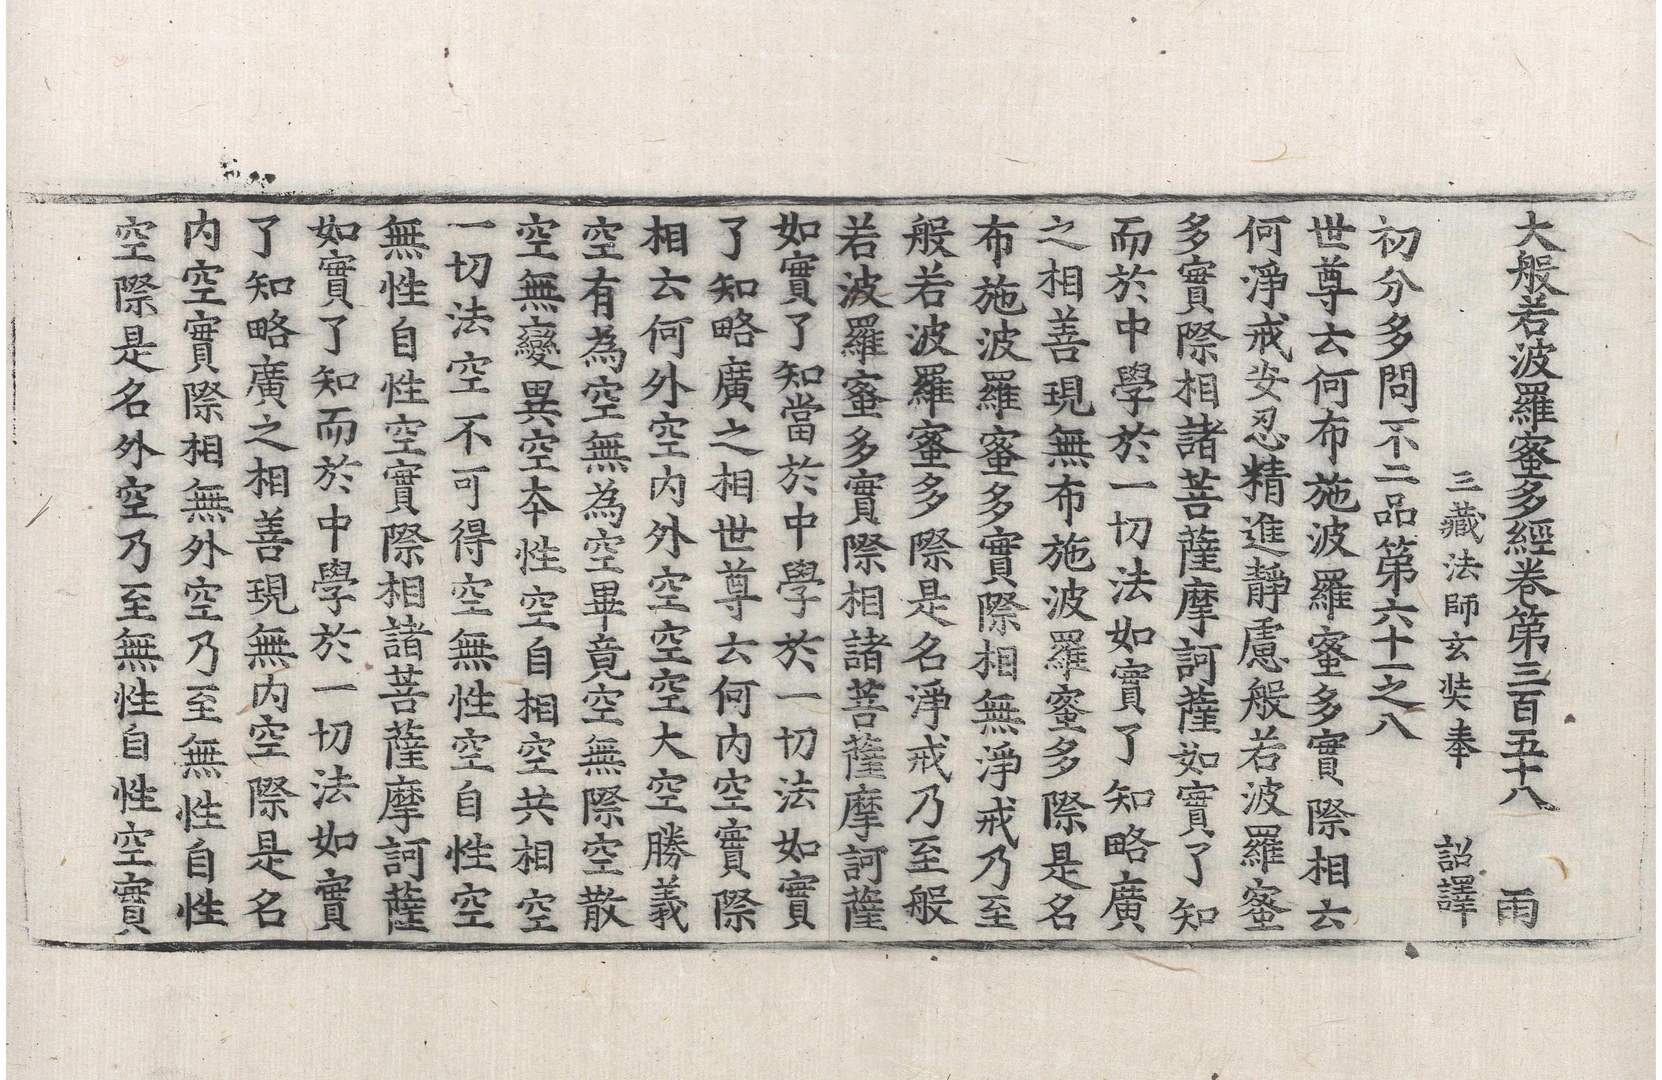 大般若波羅蜜多經卷第三百五十八　雨
三藏法師玄奘奉　詔譯
初分多問不二品第六十一之八
世尊云何布施波羅蜜多實際相云
何淨戒安忍精進靜慮般若波羅蜜
多實際相諸菩薩摩訶薩如實了知
而於中學於一切法如實了知略廣
之相善現無布施波羅蜜多際是名
布施波羅蜜多實際相無淨戒乃至
般若波羅蜜多際是名淨戒乃至般
若波羅蜜多實際相諸菩薩摩訶薩
如實了知當於中學於一切法如實
了知略廣之相世尊云何內空實際
相云何外空內外空空空大空勝義
空有為空無為空畢竟空無際空散
空無變異空本性空自相空共相空
一切法空不可得空無性空自性空
無性自性空實際相諸菩薩摩訶薩
如實了知而於中學於一切法如實
了知略廣之相善現無內空際是名
內空實際相無外空乃至無性自性
空際是名外空乃至無性自性空實